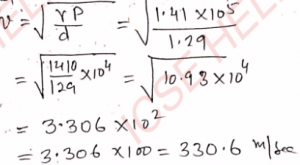 v = √(γP/d) = √(1.41 × 10⁵/1.29)
= √(1410/129 × 10⁴) = √(10.93 × 10⁴)
= 3.306 × 10²
= 3.306 × 100 = 330.6 m/sec